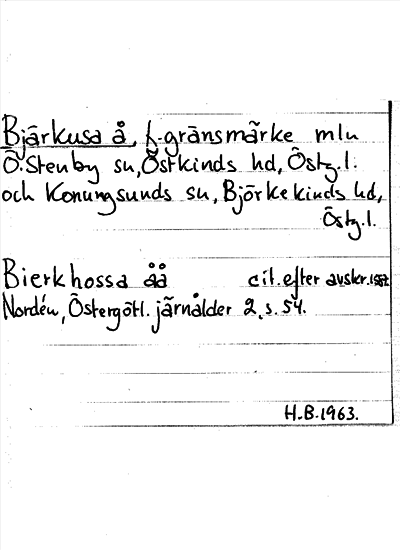 Bjärkusa å, f. gränsmärke mln
Ö. Stenby sn, Östkinds hd, Östg. l.
och Konungsunds sn, Björkekinds hd,
Östg. l.
Bierkhossa åå cit. efter avskr.
Nordén, Östergötl. järnålder 2, s. 54.
H.B. 1963.